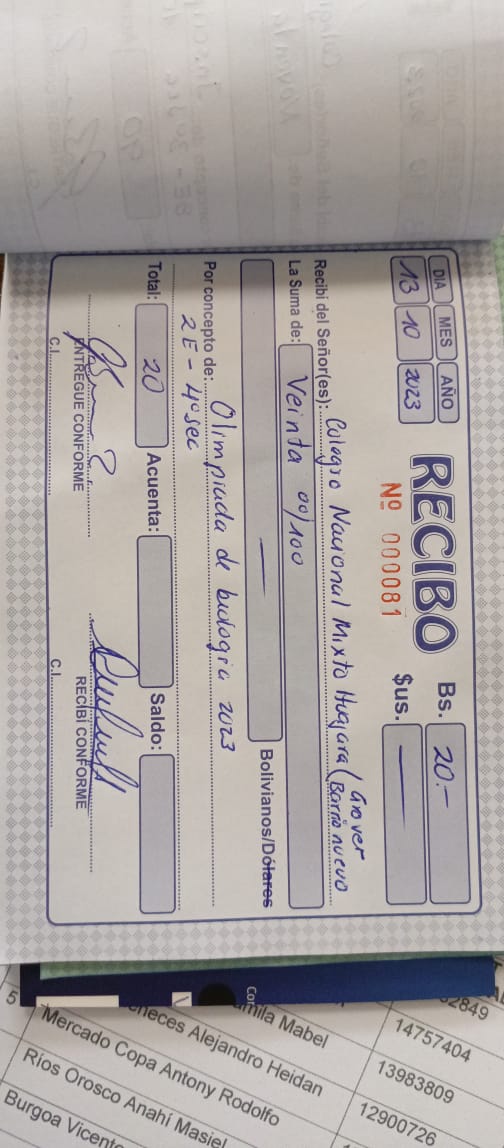 DIA MES AÑO
13 10 2023
RECIBO
Nº 000081
Bs. 20.-
$us. —
Recibí del Señor(es): Colegio Nacional Mixto Huajara (Grover
Barrio nuevo
La Suma de: Veinta 00/100
— Bolivianos/Dólares
Por concepto de: Olimpiada de biologia 2023
2E - 4º sec
Total: 20 Acuenta: Saldo:
ENTREGUE CONFORME
C.I.
RECIBI CONFORME
C.I.
2849
mila Mabel 14757404
neces Alejandro Heidan 13983809
5 Mercado Copa Antony Rodolfo 12900726
Ríos Orosco Anahí Masiel
Burgoa Vicent